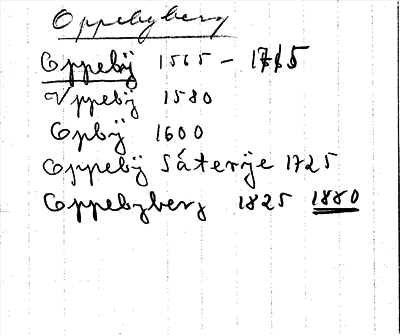 Oppebyberg
Oppebÿ 1565 - 1715
Vppebÿ 1580
Opbÿ 1600
Oppebÿ Säterÿe 1725
Oppebyberg 1825 1880